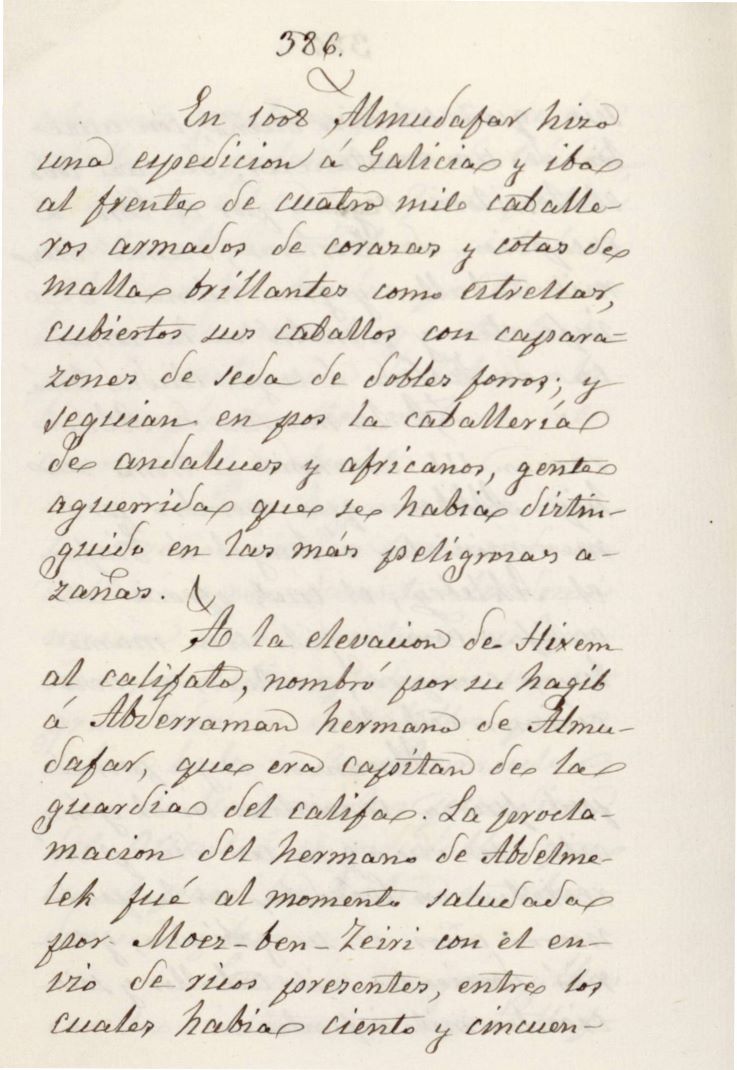 386.
En 1008 Almudafar hizo
una espedicion á Galicia y iba
al frente de cuatro mil caballe-
ros armados de corazas y cotas de
malla brillantes como estrellas,
cubiertos sus caballos con capara=
zones de seda de dobles forros; y
seguian en pos la caballería
de andaluces y africanos, gente
aguerrida que se habia distin-
guido en las más peligrosas a-
zañas.
A la elevacion de Hixem
al califato, nombró por su hagib
á Abderraman hermano de Almu-
dafar, que era capitan de la
guardia del califa. La procla-
macion del hermano de Abdelme-
lek fué al momento saludada
por Moez-ben-Zeiri con el en-
vio de ricos presentes, entre los
cuales habia ciento y cincuen-